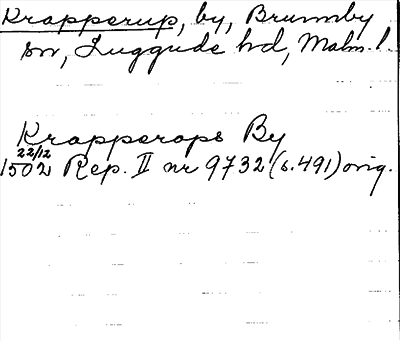 Krapperup, by, Brunnby
sn, Luggude hd, Malm. l.
Krapperops By
22/12
1502 Rep. II nr 9732 (s. 491) orig.